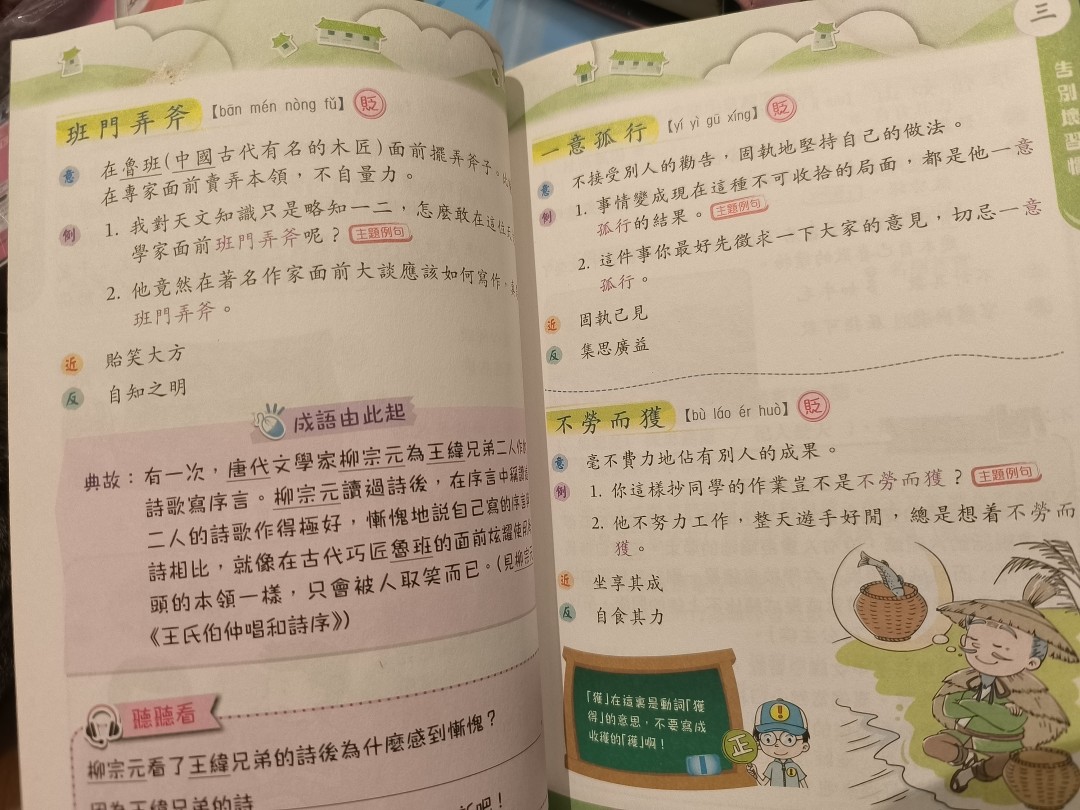 班門弄斧【bān mén nòng fǔ】貶
意 在魯班(中國古代有名的木匠)面前擺弄斧子。
在專家面前賣弄本領，不自量力。
例 1. 我對天文知識只是略知一二，怎麼敢在這位天
學家面前班門弄斧呢？主題例句
2. 他竟然在著名作家面前大談應該如何寫作，
班門弄斧。
近 貽笑大方
反 自知之明
成語由此起
典故：有一次，唐代文學家柳宗元為王緯兄弟二人作的
詩歌寫序言。柳宗元讀過詩後，在序言中稱讚這
二人的詩歌作得極好，慚愧地説自己寫的序言與
詩相比，就像在古代巧匠魯班的面前炫耀使用
頭的本領一樣，只會被人取笑而已。(見柳宗元
《王氏伯仲唱和詩序》)
聽聽看
柳宗元看了王緯兄弟的詩後為什麼感到慚愧？
因為王緯兄弟的詩
吧！
三
告別壞習慣
一意孤行【yí yì gū xíng】貶
意 不接受別人的勸告，固執地堅持自己的做法。
例 1. 事情變成現在這種不可收拾的局面，都是他一意
孤行的結果。主題例句
2. 這件事你最好先徵求一下大家的意見，切忌一意
孤行。
近 固執己見
反 集思廣益
不勞而獲【bù láo ér huò】貶
意 毫不費力地佔有別人的成果。
例 1. 你這樣抄同學的作業豈不是不勞而獲？主題例句
2. 他不努力工作，整天遊手好閒，總是想着不勞而
獲。
近 坐享其成
反 自食其力
「獲」在這裏是動詞「獲
得」的意思，不要寫成
收穫的「穫」啊！
正